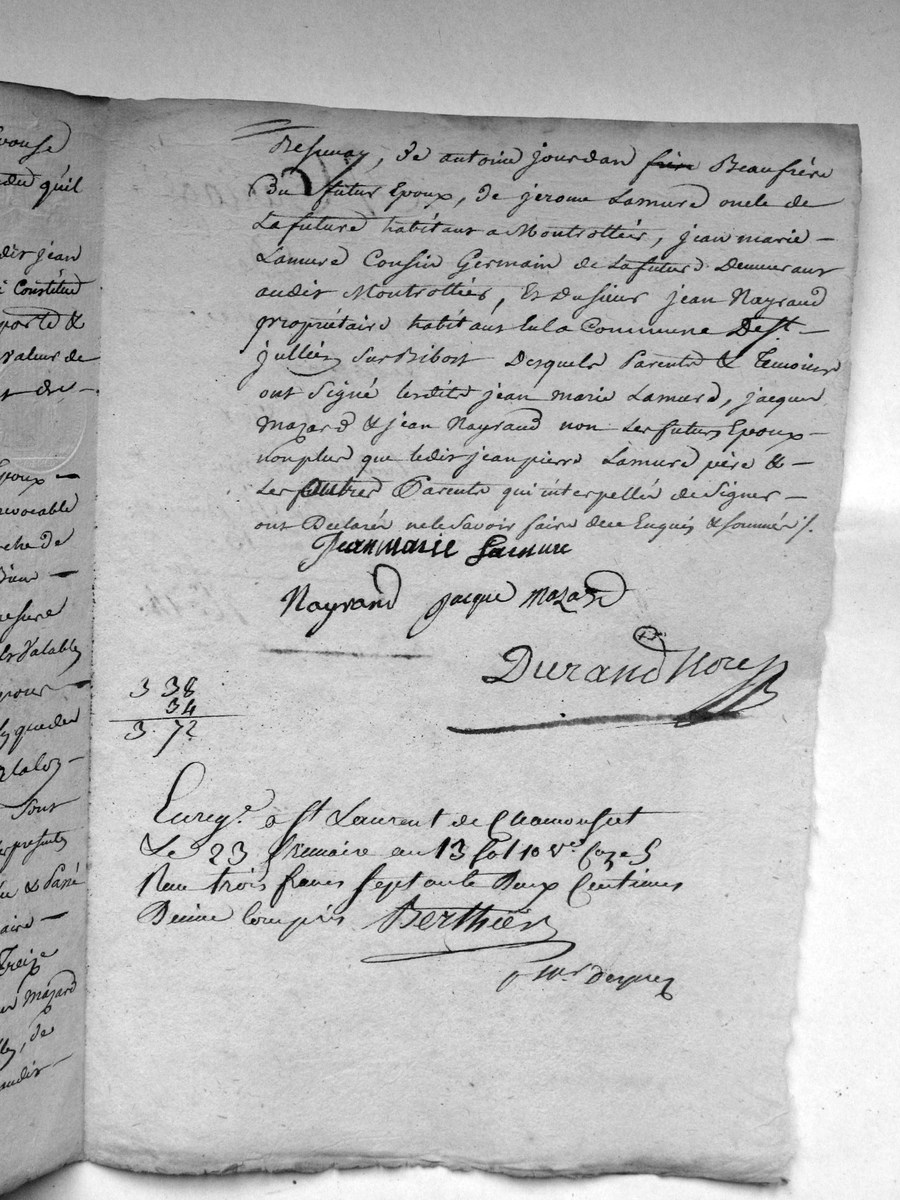 épouse
qu'il
dit jean
Constitué
porte &
valeur de
Époux —
irrevocable
de
valables
pour —
que de
Sont
presents
& Passé
Treize
Mazard
de
audit —
de antoine jourdan frère Beaufrére
Du futur Epoux, de jerome Lamure oncle de
La future habitant a Montrottier, jean marie —
Lamure Cousin Germain de La future Demeurant
audit Montrottier, Et Du sieur jean Nayrand
propriétaire habitant en la Commune De St. —
jullien Sur Bibost Desquels Parents & Temoins
ont Signé lesdits jean marie Lamure, jacques
Mazard & jean Nayrand non Les futurs Epoux —
non plus que ledit jean pierre Lamure père & —
Les autres Parents qui interpellés de Signer —
ont Declarés ne le Savoir faire de ce Enquis & Sommés ./.
Jeanmarie Lamure
Nayrand jacque Mazard
Durand Nore
3 38
34
3. 72
Enregé. a St Laurent de Chamousset
Le 23 frimaire an 13 fol 10 vo. Caze 5
Reçu trois francs Septante Deux Centimes
Decime Compris Berthier